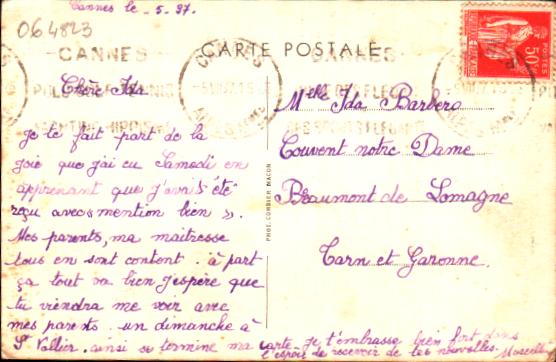 Cannes le _ 5. 37.
064823
CARTE POSTALE
CANNES
CANNES
50c
Chère Ida
Je te fait part de la
joie que j'ai eu Samedi en
apprenant que j'avais été
reçu avec « mention bien ».
Mes parents, ma maitresse
tous en sont content. à part
ça tout va bien j'espère que
tu viendra me voir avec
mes parents un dimanche à
St Vallier. ainsi se termine ma carte je t'embrasse bien fort dans
l'espoir de recevoir de tes nouvelles.
PHOT. COMBIER MACON
Melle Ida Barbero
Couvent notre Dame
Beaumont de Lomagne
Tarn et Garonne.